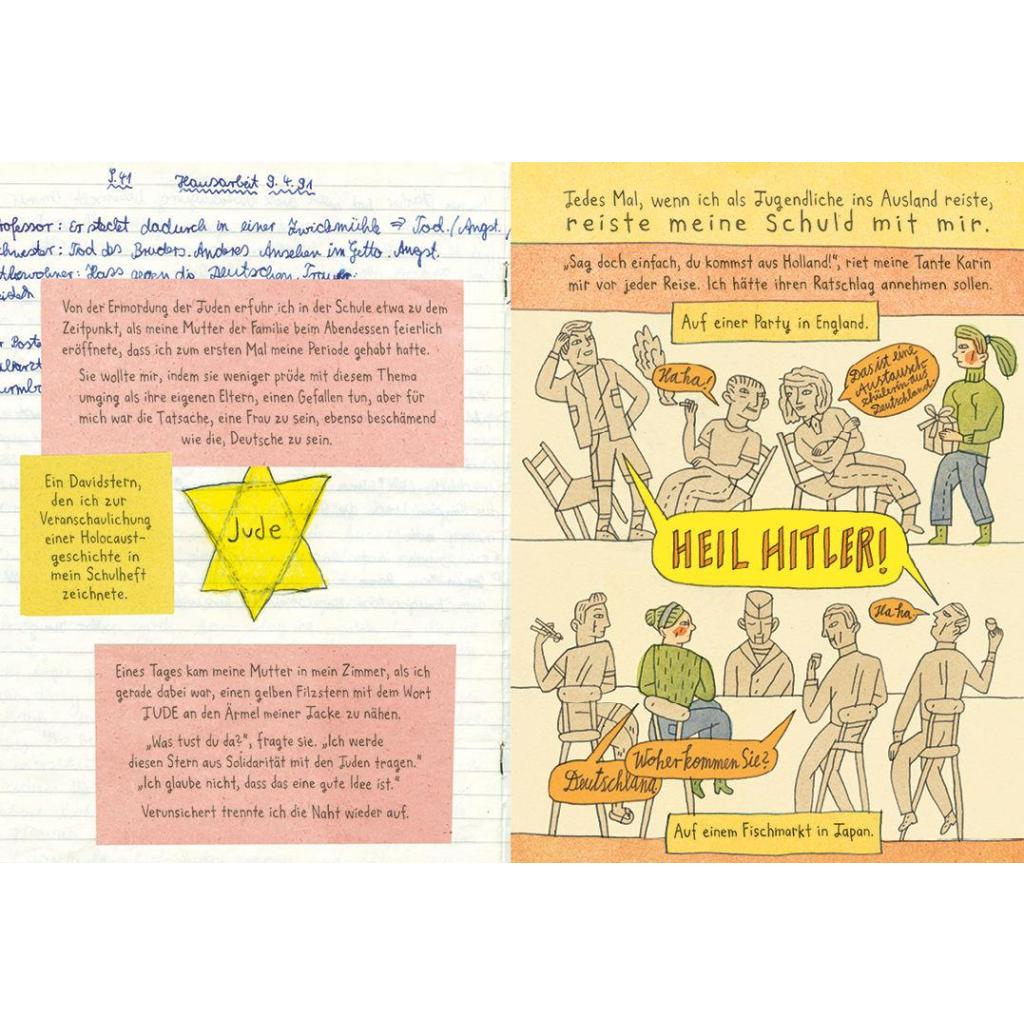 S.41 Hausarbeit 9.4.91
Professor: Er steckt dadurch in einer Zwickmühle ⇒ Tod./Angst.
Tod des Bruders. Anderes Ansehen im Getto. Angst.
Hass gegen die Deutschen. Trauer.
Von der Ermordung der Juden erfuhr ich in der Schule etwa zu dem
Zeitpunkt, als meine Mutter der Familie beim Abendessen feierlich
eröffnete, dass ich zum ersten Mal meine Periode gehabt hatte.
Sie wollte mir, indem sie weniger prüde mit diesem Thema
umging als ihre eigenen Eltern, einen Gefallen tun, aber für
mich war die Tatsache, eine Frau zu sein, ebenso beschämend
wie die, Deutsche zu sein.
Ein Davidstern,
den ich zur
Veranschaulichung
einer Holocaust-
geschichte in
mein Schulheft
zeichnete.
Jude
Eines Tages kam meine Mutter in mein Zimmer, als ich
gerade dabei war, einen gelben Filzstern mit dem Wort
JUDE an den Ärmel meiner Jacke zu nähen.
„Was tust du da?“, fragte sie. „Ich werde
diesen Stern aus Solidarität mit den Juden tragen.“
„Ich glaube nicht, dass das eine gute Idee ist.“
Verunsichert trennte ich die Naht wieder auf.
Jedes Mal, wenn ich als Jugendliche ins Ausland reiste,
reiste meine Schuld mit mir.
„Sag doch einfach, du kommst aus Holland!“, riet meine Tante Karin
mir vor jeder Reise. Ich hätte ihren Ratschlag annehmen sollen.
Auf einer Party in England.
Haha!
Das ist eine
Austausch-
schülerin aus
Deutschland.
HEIL HITLER!
Ha ha.
Woher kommen Sie?
Deutschland.
Auf einem Fischmarkt in Japan.